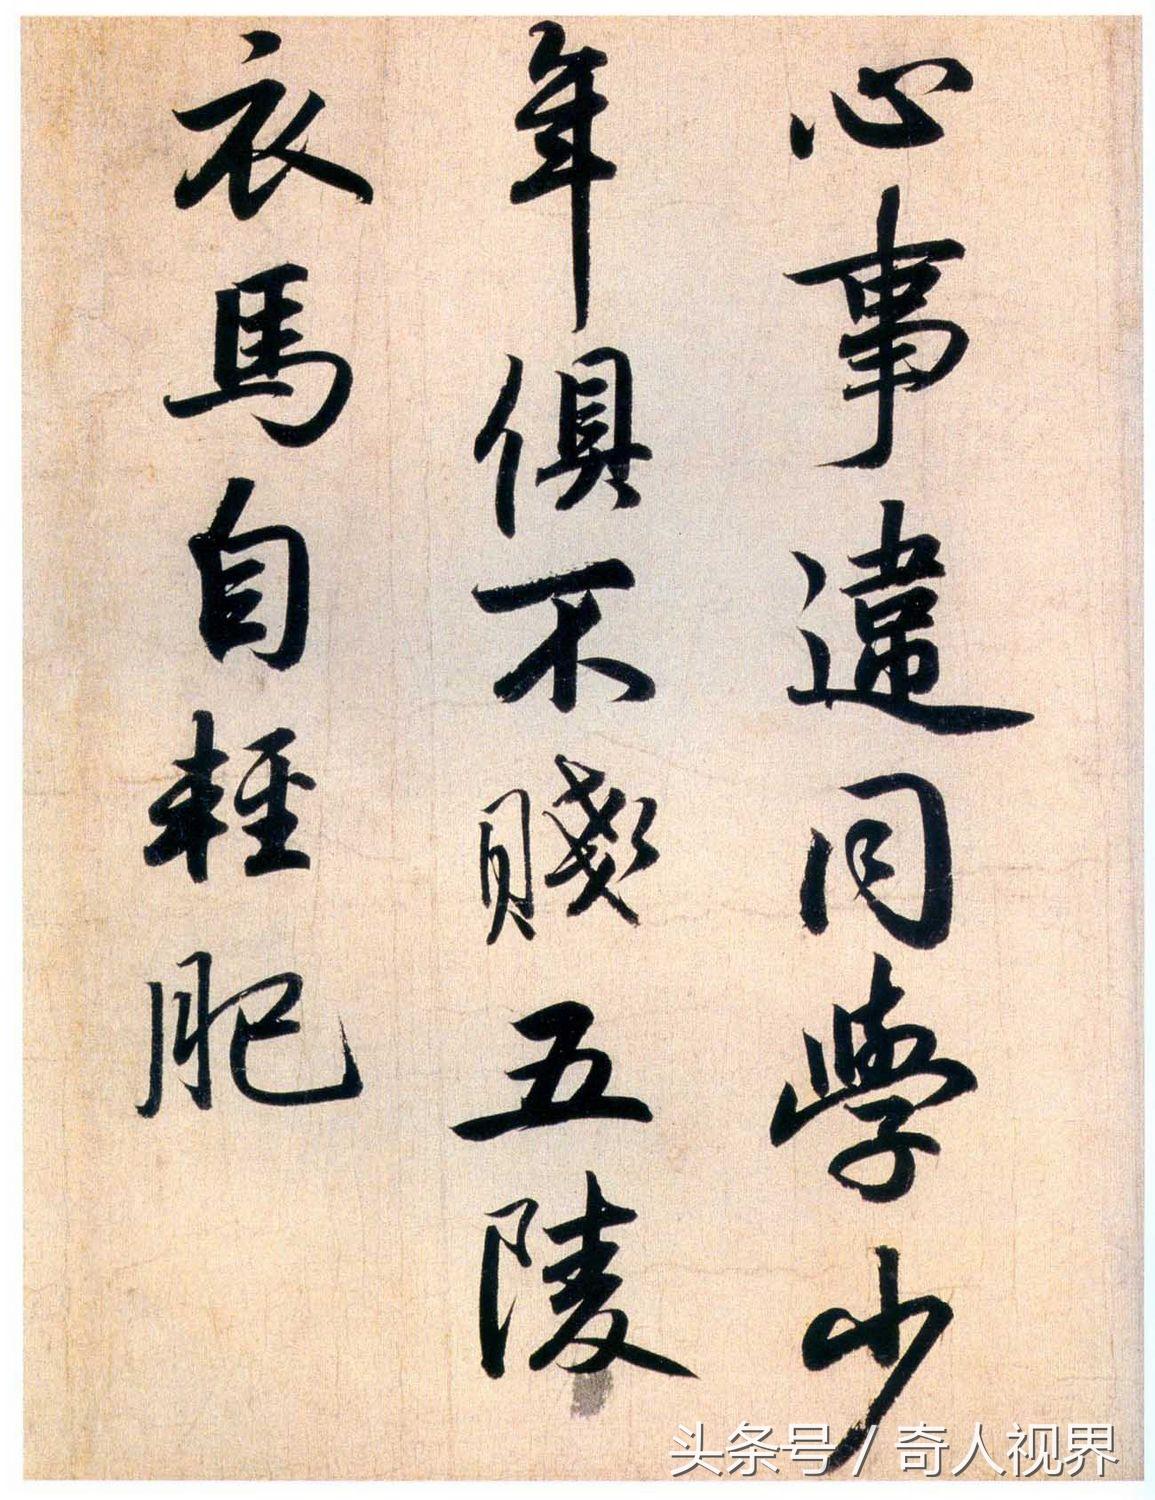 心事違同學少
年俱不賤五陵
衣馬自輕肥
头条号 / 奇人视界